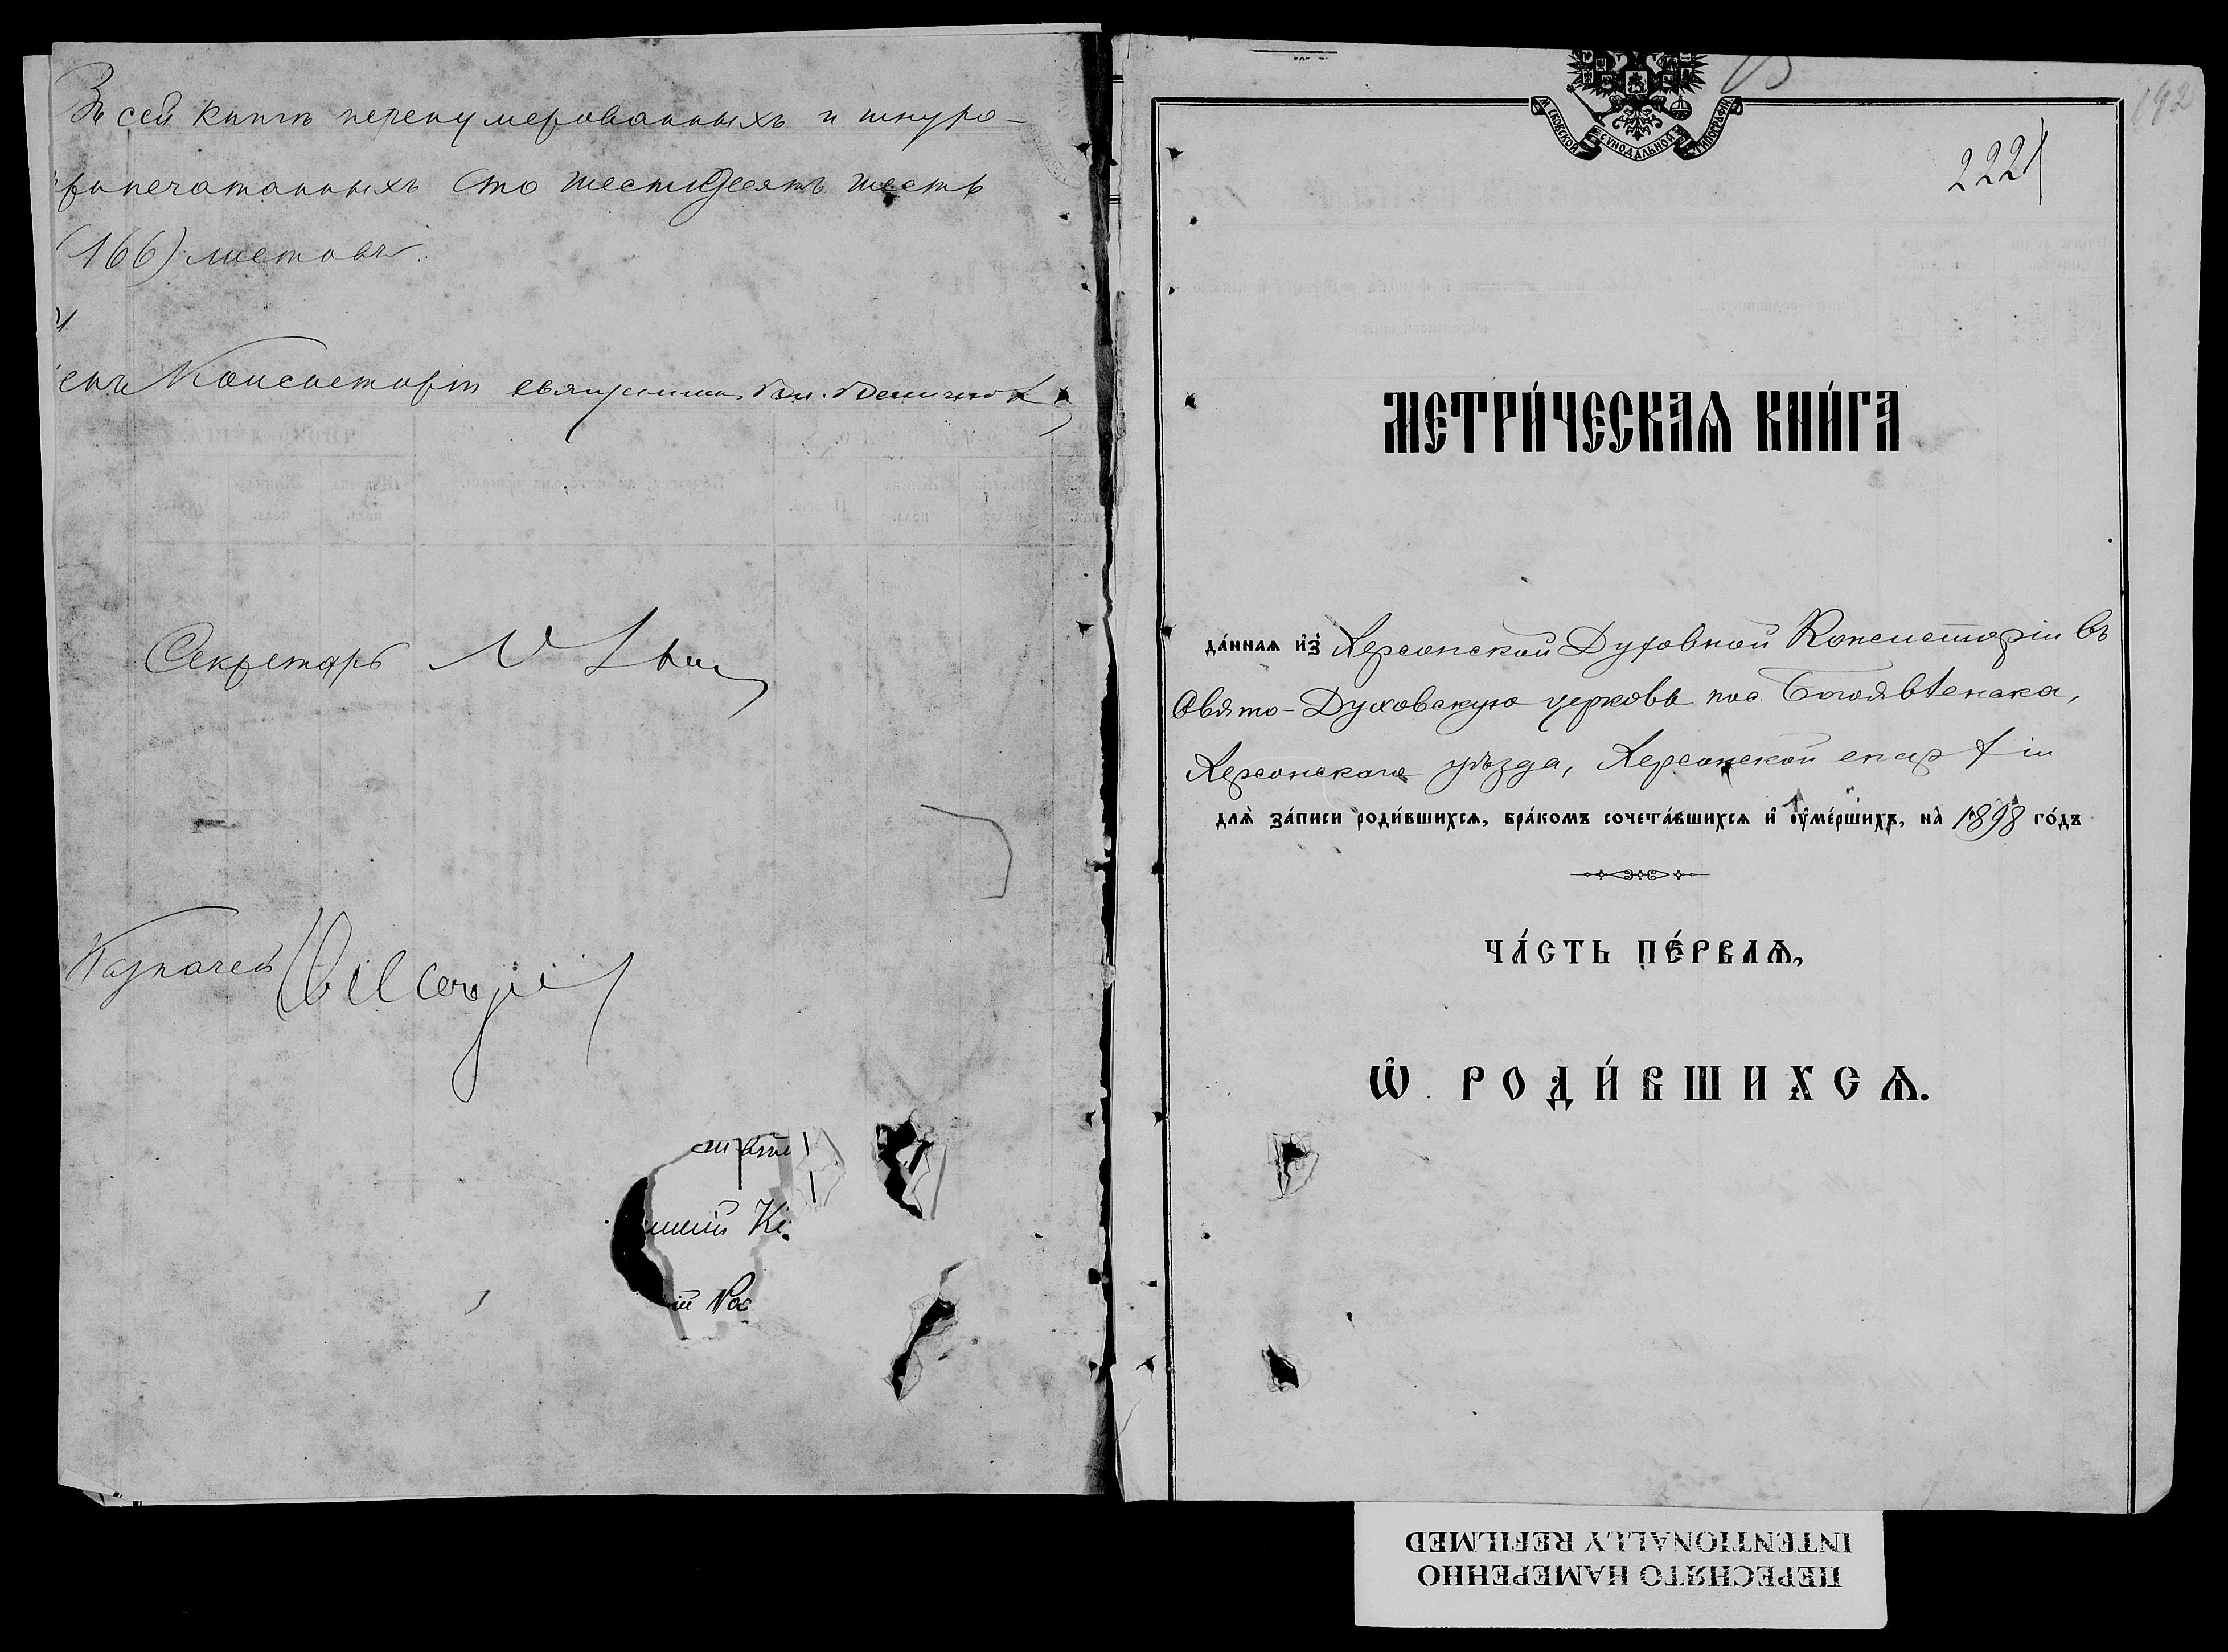 Въ сей книгѣ перенумерованныхъ и шнуро-
припечатанныхъ сто шестьдесятъ шесть
(166) листовъ.
Консисторіи священникъ
Секретарь
Казначей
ши Кі
ій Рос
192
МОСКОВСКОЙ СУНОДАЛЬНОЙ ТИПОГРАФІИ
2221
МЕТРИ́ЧЕСКАѦ КНИ́ГА
да́ннаѧ и҆з̾ Херсонской Духовной Консисторіи въ
Свято-Духовскую церковь пос. Богоявленска,
Херсонскаго уѣзда, Херсонской епархіи
длѧ̀ за́писи роди́вшихсѧ, бра́комъ сочета́вшихсѧ и҆ ᲂу҆ме́ршихъ, на̀ 1898 го́дъ
ЧА́СТЬ ПЕ́РВАѦ,
Ѽ РОДИ́ВШИХСѦ.
ПЕРЕСНЯТО НАМЕРЕННО
INTENTIONALLY REFILMED